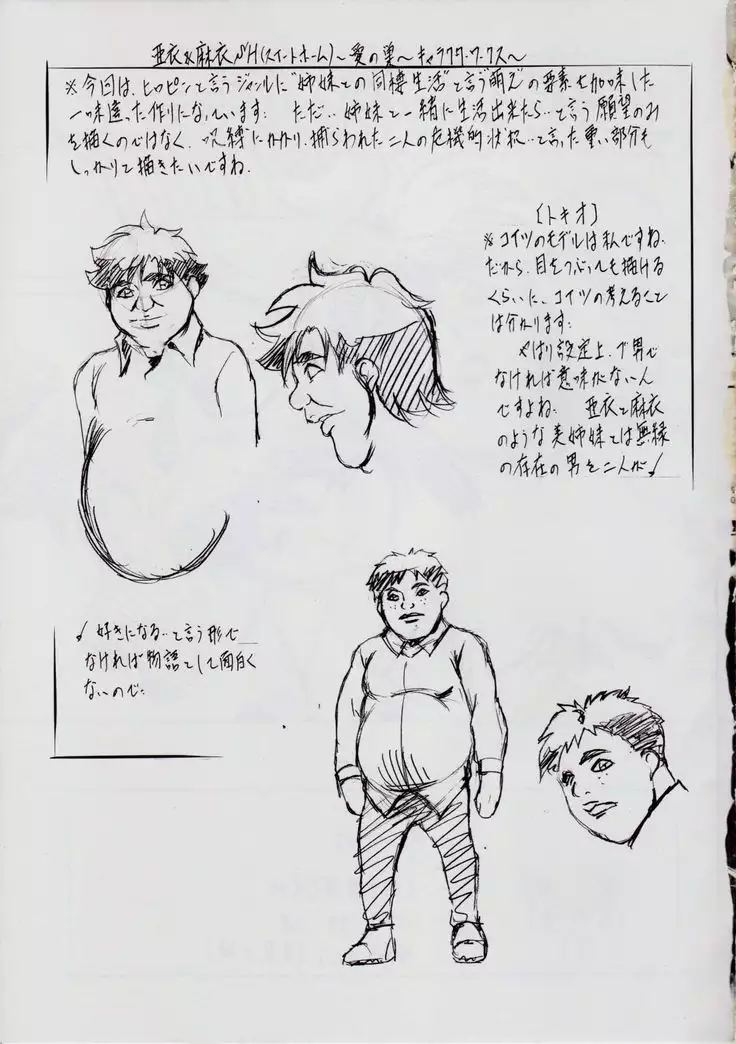 亜衣&麻衣SH(スイートホーム)～愛の巣～キャラクターワークス～
※今回は、ヒロピンと言うジャンルに"姉妹との同棲生活"と言う"萌え"の要素を加味した
一味違った作りになっています: ただ‥姉妹と一緒に生活出来たら‥と言う願望のみ
を描くのではなく、"呪縛"にかかり、捕らわれた二人の危機的状況‥と言った重い部分も
しっかりと描きたいですね.
〔トキオ〕
※コイツのモデルは私ですね.
だから、目をつぶっても描ける
くらいに、コイツの考えること
は分かります:
やはり設定上、デ男で
なければ意味がないん
ですよね. 亜衣と麻衣
のような美姉妹とは無縁
の存在の男を二人が↓
↓好きになる‥と言う形で
なければ物語として面白く
ないので: